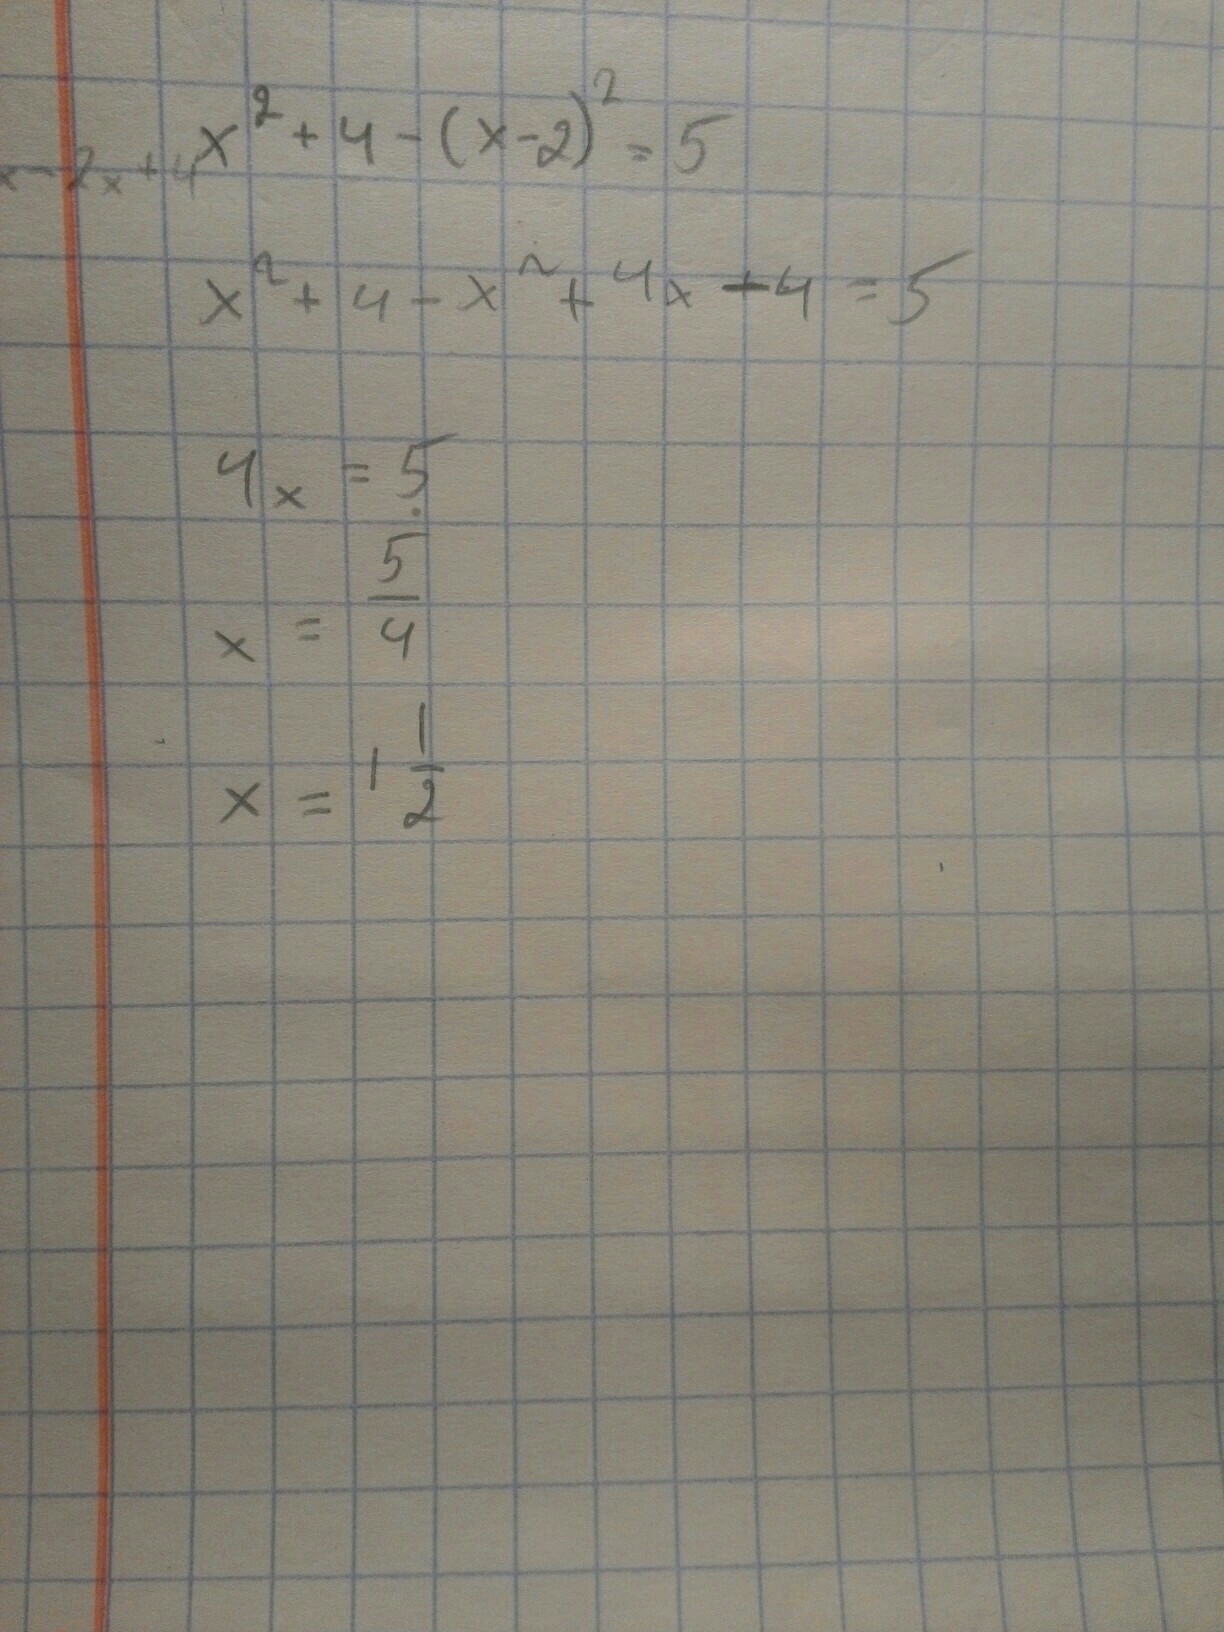 x² + 4 - (x - 2)² = 5
x - 2x + 4
x² + 4 - x² + 4x + 4 = 5
4x = 5
x = 5/4
x = 1 1/2